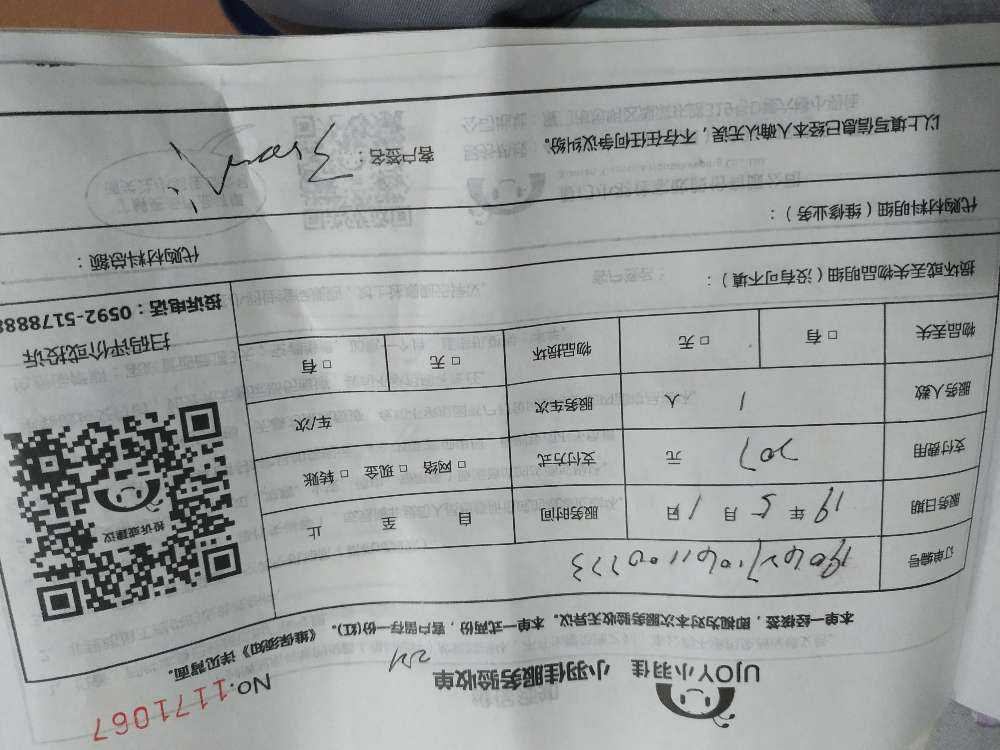 UJOY小羽佳 小羽佳服务验收单
NO.1171067
本单一经核签，即视为对本次服务验收无异议。本单一式两份，客户留存一份(红)。《维保须知》详见背面。
订单编号
服务日期 19 年 5 月 1 日 服务时间 自 至 止
支付费用 207 元 支付方式 □ 网络 □ 现金 □ 转账
服务人数 1 人 服务车次 车/次
物品丢失 □ 有 □ 无 物品损坏 □ 无 □ 有
投诉或建议
扫码评价或投诉
投诉电话：0592-5178888
损坏或丢失物品明细（没有可不填）：
代购材料明细（维修业务）： 代购材料总额：
以上填写信息已经本人确认无误，不存在任何争议纠纷。 客户签名：